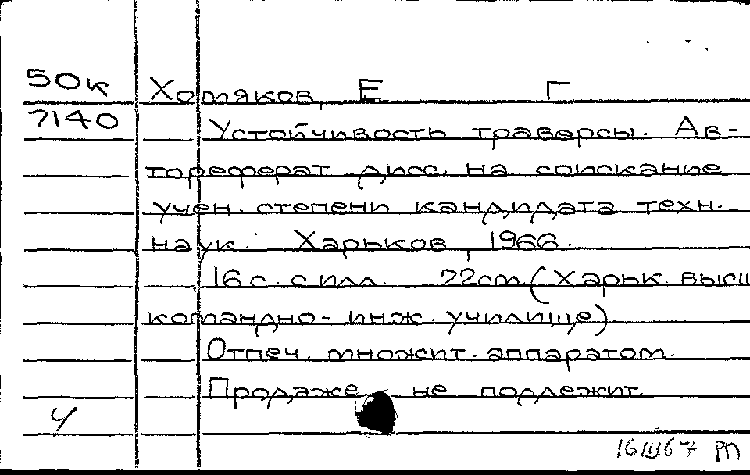 50к Хомяков, Е Г
7140 Устойчивость траверсы. Ав-
тореферат дисс. на соискание
учен. степени кандидата техн.
наук. Харьков, 1966.
16 с. с илл. 22 cm (Харьк. высш
командно-инж. училище).
Отпеч. множит. аппаратом.
Продаже не подлежит.
16 III 67